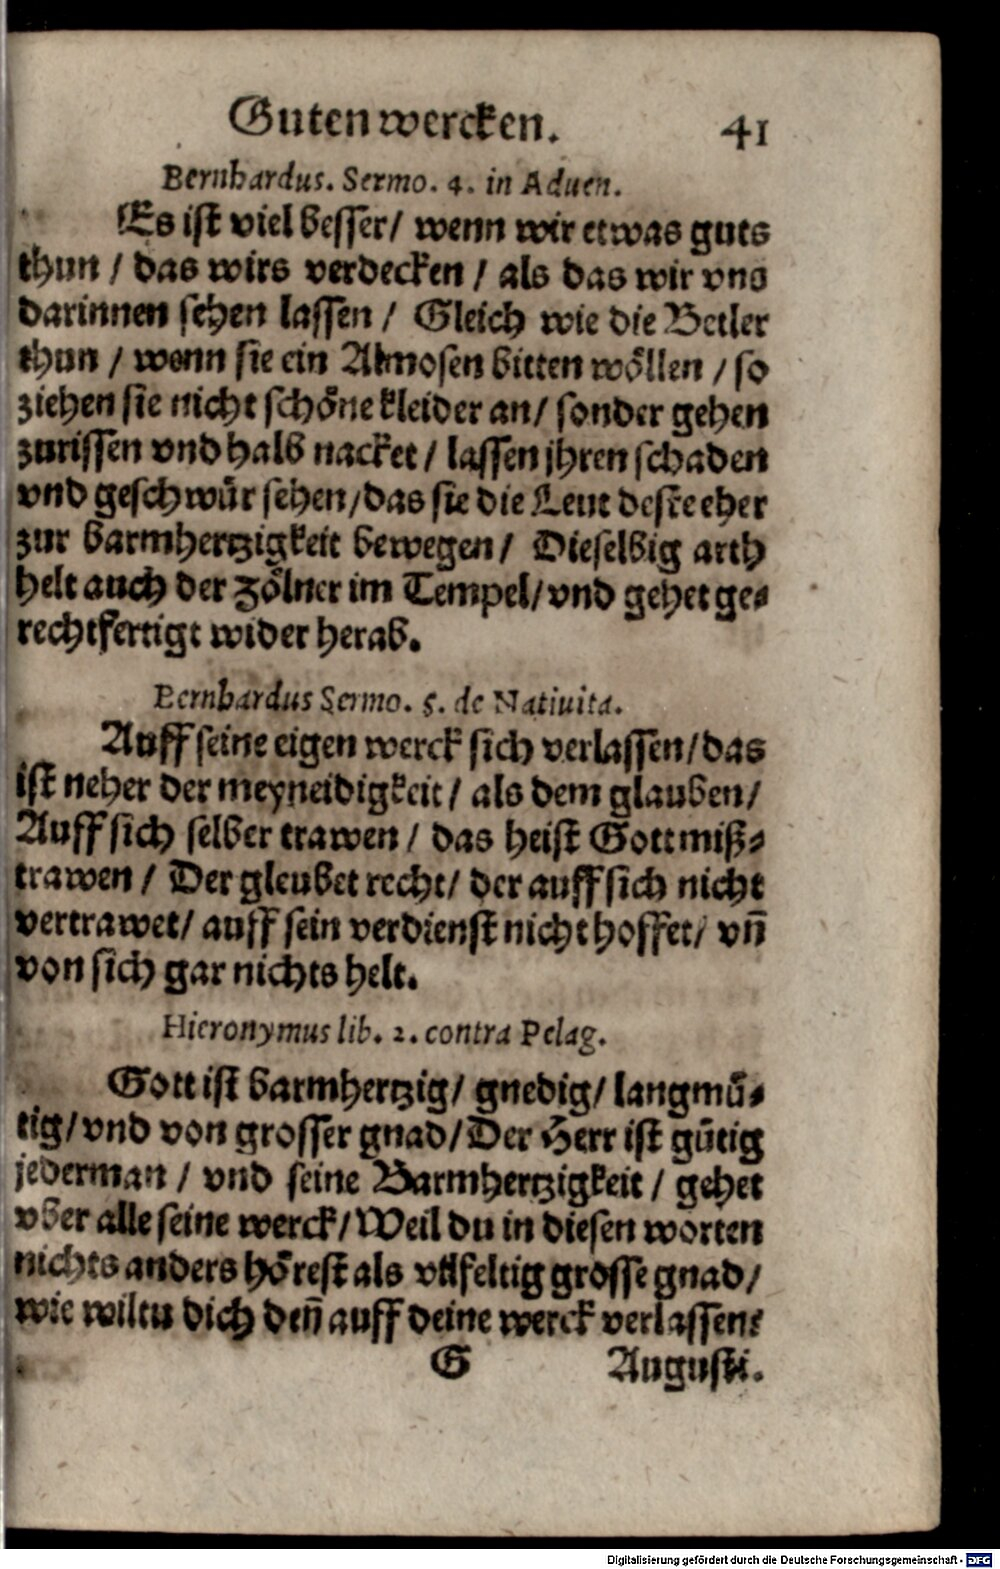 Guten wercken. 41
Bernhardus. Sermo. 4. in Aduen.
Es ist viel besser/ wenn wir etwas guts
thun / das wirs verdecken / als das wir vns
darinnen sehen lassen / Gleich wie die Betler
thun / wenn sie ein Almosen bitten wöllen / so
ziehen sie nicht schöne kleider an/ sonder gehen
zurissen vnd halb nacket / lassen jhren schaden
vnd geschwür sehen/das sie die Leut deste eher
zur barmhertzigkeit bewegen/ Dieselbig arth
helt auch der Zölner im Tempel/vnd gehet ge⸗
rechtfertigt wider herab.
Bernhardus Sermo. 5. de Natiuita.
Auff seine eigen werck sich verlassen/das
ist neher der meyneidigkeit/ als dem glauben/
Auff sich selber trawen / das heist Gott miß⸗
trawen / Der gleubet recht/ der auff sich nicht
vertrawet/ auff sein verdienst nicht hoffet/ vn̄
von sich gar nichts helt.
Hieronymus lib. 2. contra Pelag.
Gott ist barmhertzig/ gnedig/ langmü⸗
tig/vnd von grosser gnad/Der Herr ist gütig
jederman / vnd seine Barmhertzigkeit / gehet
vber alle seine werck/Weil du in diesen worten
nichts anders hörest als vilfeltig grosse gnad/
wie wiltu dich den̄ auff deine werck verlassen?
G Augusti.
Digitalisierung gefördert durch die Deutsche Forschungsgemeinschaft - DFG